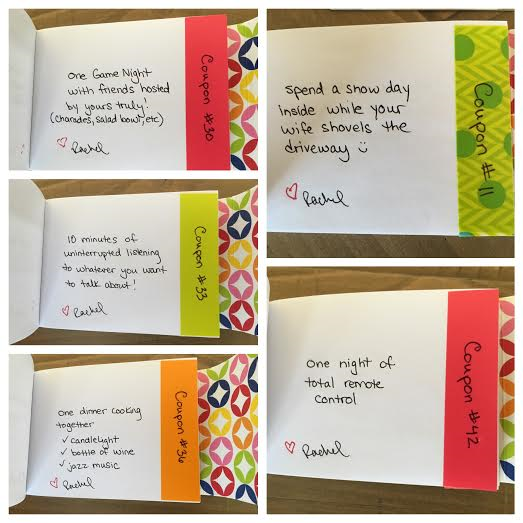 One Game Night
with friends hosted
by yours truly!
(charades, salad bowl, etc)
Rachel
Coupon #30
10 minutes of
uninterrupted listening
to whatever you want
to talk about!
Rachel
Coupon #33
One dinner cooking
together
✓ candlelight
✓ bottle of wine
✓ jazz music
Rachel
Coupon #36
Spend a snow day
inside while your
wife shovels the
driveway
Rachel
Coupon #11
One night of
total remote
control
Rachel
Coupon #42